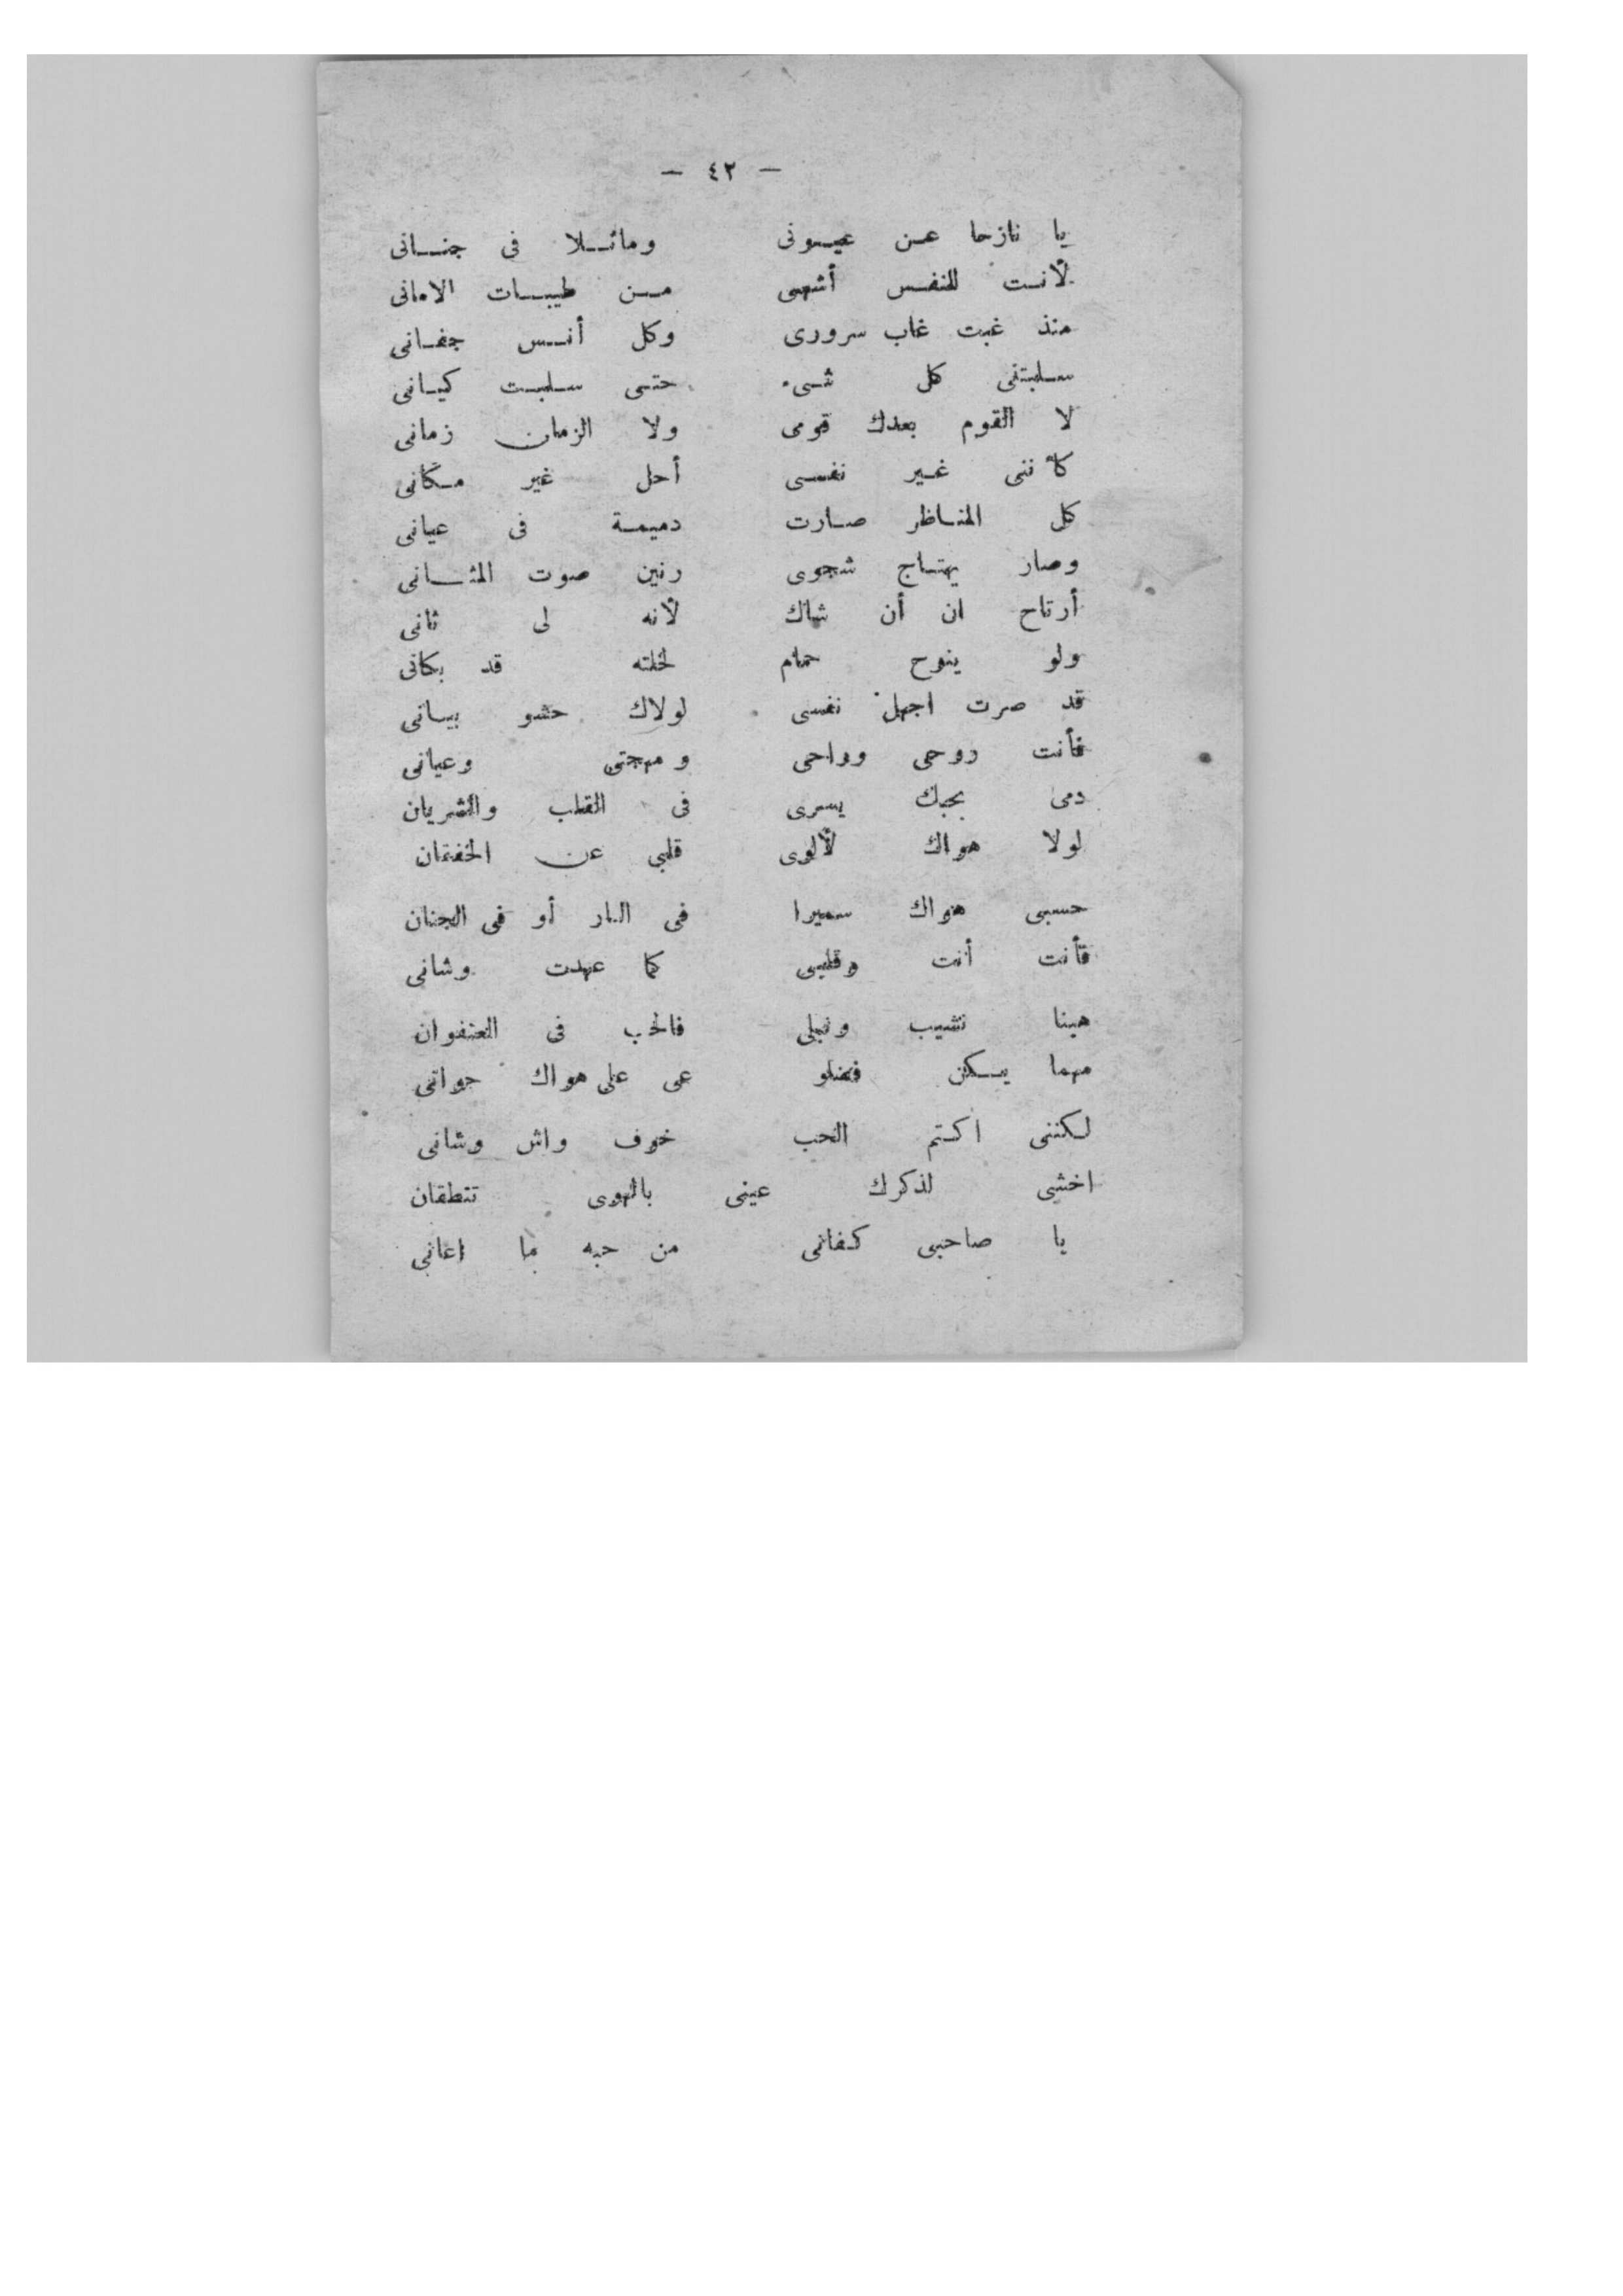 — ٤٢ —
يا نازحا عن عيونى ومائلا فى جنانى
لأنت للنفس أشهى من طيبات الامانى
منذ غبت غاب سرورى وكل أنس جفانى
سلبتنى كل شىء حتى سلبت كيانى
لا القوم بعدك قومى ولا الزمان زمانى
كأننى غير نفسى أحل غير مكانى
كل المناظر صارت دميمة فى عيانى
وصار يهتاج شجوى رنين صوت المثانى
أرتاح ان أن شاك لأنه لى ثانى
ولو ينوح حمام لخلته قد بكانى
قد صرت اجهل نفسى لولاك حشو بيانى
فأنت روحى وراحى ومهجتى وعيانى
دمى بحبك يسرى فى القلب والشريان
لولا هواك لألوى قلبى عن الخفقان
حسبى هواك سميرا فى النار أو فى الجنان
فأنت أنت وقلبى كما عهدت وشانى
هبنا نشيب ونبلى فالحب فى العنفوان
مهما يكن فضلو عى على هواك حوانى
لكننى اكتم الحب خوف واش وشانى
اخشى لذكرك عينى بالهوى تنطقان
يا صاحبى كفانى من حبه ما اعانى